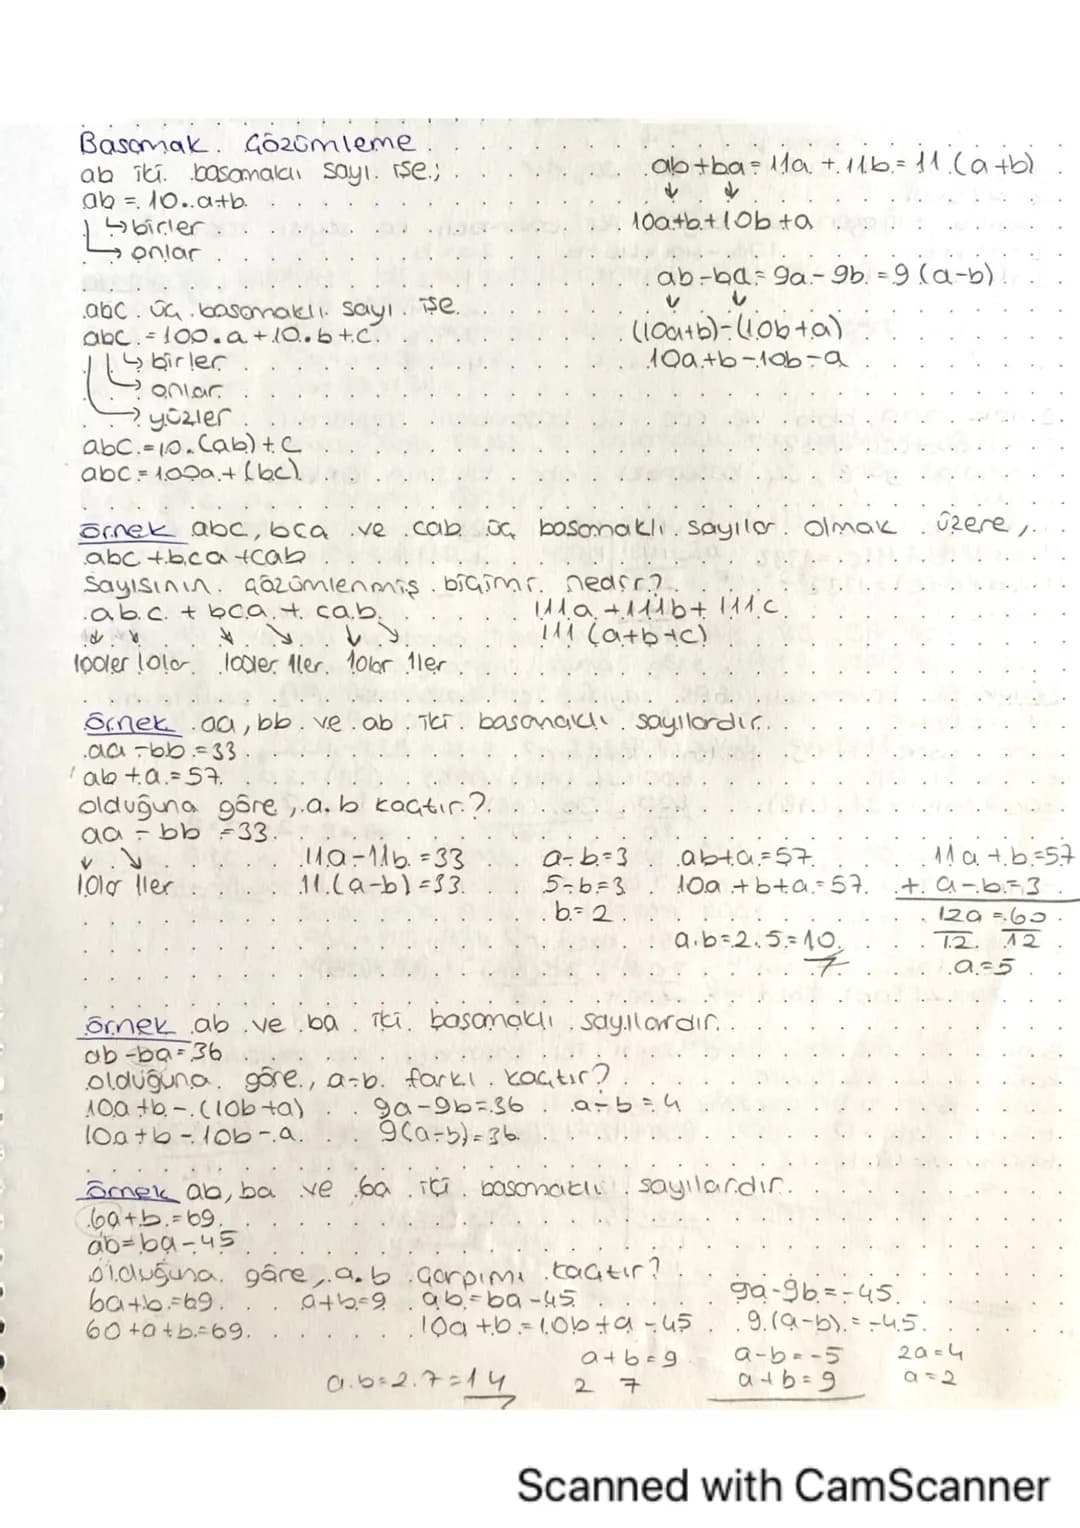 Basamak Çözümleme
ab iki basamaklı sayı ise;
ab = 10.a+b
↳ birler
↳ onlar
ab+ba = 11a + 11b = 11.(a+b)
10a+b+10b+a
ab-ba = 9a-9b = 9(a-b)
(10a+b)-(10b+a)
10a+b-10b-a
abc üç basamaklı sayı ise
abc = 100.a+10.b+c
↳ birler
→ onlar
→ yüzler
abc = 10.(ab)+c
abc = 100a+(bc)
örnek abc, bca ve cab üç basamaklı sayılar olmak üzere,
abc+bca+cab
sayısının çözümlenmiş biçimi nedir?
abc + bca + cab
111a+111b+111c
111(a+b+c)
100ler 10lar 100ler 1ler 10lar 1ler
örnek aa, bb ve ab iki basamaklı sayılardır.
aa-bb=33
ab+a=57
olduğuna göre, a.b kaçtır?
aa-bb=33
10lar 1ler
11a-11b=33
11.(a-b)=33
a-b=3
5-b=3
b=2
ab+a=57
10a+b+a=57
a.b=2.5=10
11a+b=57
+ a-b=3
12a=60
12 12
a=5
örnek ab ve ba iki basamaklı sayılardır.
ab-ba=36
olduğuna göre, a-b farkı kaçtır?
10a+b-(10b+a) 9a-9b=36 a-b=4
10a+b-10b-a 9(a-b)=36
örnek ab, ba ve 6a iki basamaklı sayılardır.
6a+b=69
ab=ba-45
olduğuna göre, a.b çarpımı kaçtır?
6a+b=69 a+b=9 ab=ba-45
60+a+b=69 10a+b=10b+a-45
9a-9b=-45
9.(a-b)=-45
a+b=9
2 7
a-b=-5
a+b=9
2a=4
a=2
a.b=2.7=14
Scanned with CamScanner